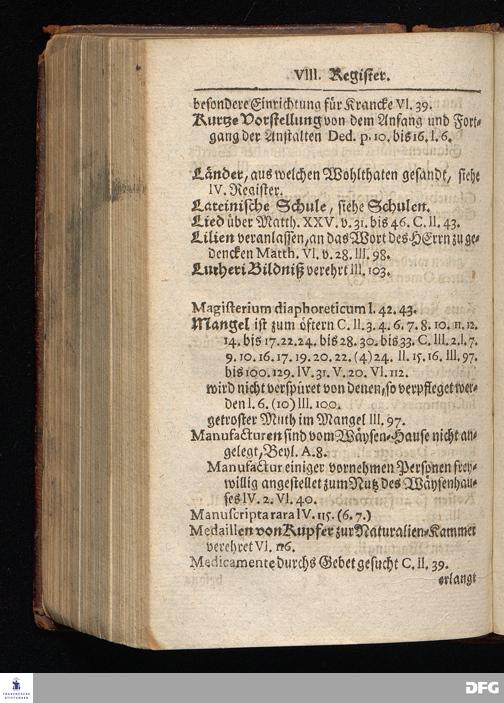 VIII. Register.
besondere Einrichtung für Krancke VI. 39.
Kurtze Vorstellung von dem Anfang und Fort-
gang der Anstalten Ded. p. 10. bis 16. I. 6.
Länder, aus welchen Wohlthaten gesandt, siehe
IV. Register.
Lateinische Schule, siehe Schulen.
Lied über Matth. XXV. v. 31. bis 46. C. II. 43.
Lilien veranlassen, an das Wort des HErrn zu ge-
dencken Matth. VI. v. 28. III. 98.
Lutheri Bildniß verehrt III. 103.
Magisterium diaphoreticum I. 42. 43.
Mangel ist zum öftern C. II. 3. 4. 6. 7. 8. 10. 11. 12.
14. bis 17. 22. 24. bis 28. 30. bis 33. C. III. 2. I. 7.
9. 10. 16. 17. 19. 20. 22. (4) 24. II. 15. 16. III. 97.
bis 100. 129. IV. 31. V. 20. VI. 112.
wird nicht verspüret von denen, so verpfleget wer-
den I. 6. (10) III. 100.
getroster Muth im Mangel III. 97.
Manufacturen sind vom Wäysen-Hause nicht an-
gelegt, Beyl. A. 8.
Manufactur einiger vornehmen Personen frey-
willig angestellet zum Nutz des Wäysenhau-
ses IV. 2. VI. 40.
Manuscripta rara IV. 115. (6. 7.)
Medaillen von Kupfer zur Naturalien-Kammer
verehret VI. 116.
Medicamente durchs Gebet gesucht C. II. 39.
erlangt
FRANCKESCHE
STIFTUNGEN
DFG